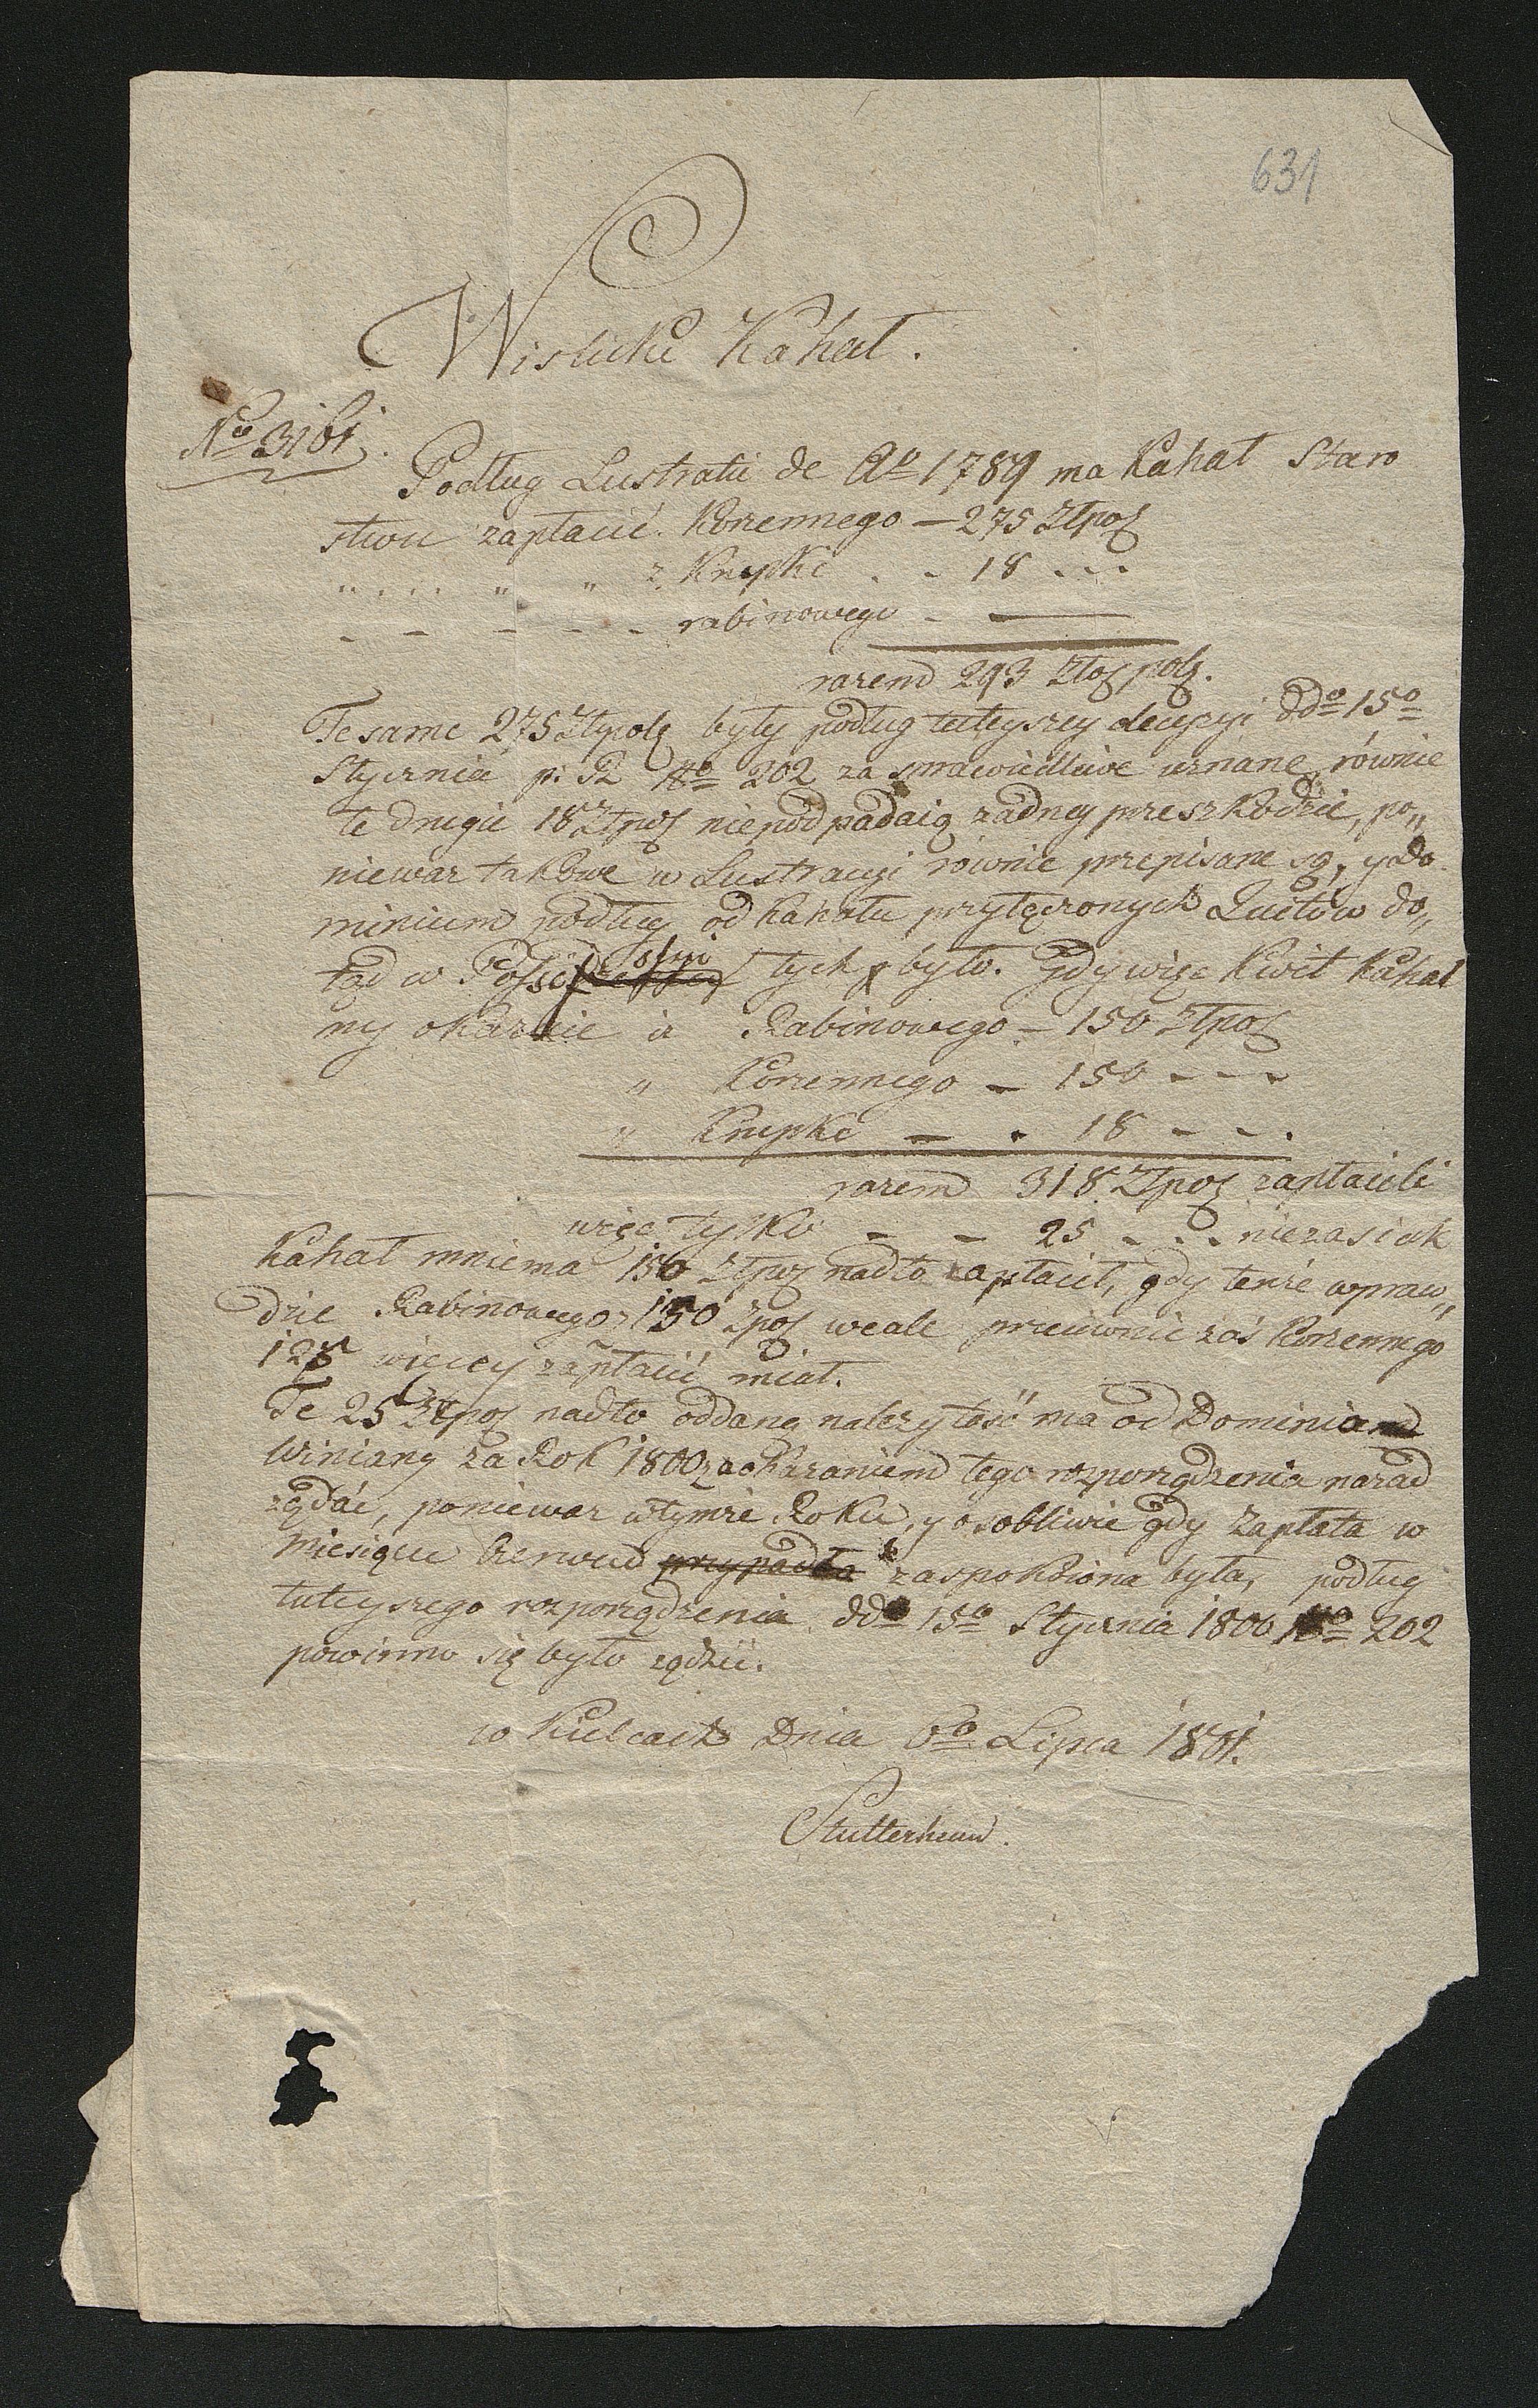 631
Wislicki Kahał.
No 3161.
Podług Lustratii de Ao 1789 ma Kahał Staro
stwu zapłacić Korzennego — 275 Złpol
" . . . " " z Krupki . - 18 - - -
- - - - - rabinowego - —
razem 293 Złot pol.
Te same 275 Złpols były podług tuteyszey decyzyi ddo 15o
Stycznia p: R No 202 za sprawiedliwe uznane, równie
te drugie 18 Złpol niepodpadaią żadney przeszkodzie, po„
nieważ takowe w Lustracyi równie przepisane są, y do
minium podług od Kahału przyłączonych Quitów do„
tąd w tych było. Gdy więc Kwit Kahal
ny okazuie à Rabinowego — 150 Złpol
" Korzennego — 150 - - -
" Krupki — . 18 - - .
razem 318 Złpol zapłacili
więc tylko - - 25 - - - nie zas iak
Kahał mniema 150 Złpol nadto zapłacił, gdy tenże wpraw„
dzie Rabinowego 150 Zpol wcale przeciwnie zaś Korzennego
125 więcey zapłacić miał.
Te 25 Złpol nadto oddaną należytość ma od Dominium
Winiary za Rok 1800 za okazaniem tego rozporządzenia nazad
żądać, ponieważ w tymże Roku, y osobliwie gdy zapłata w
Miesiącu Czerwcu przypadła zaspokoiona była, podług
tuteyszego rozporządzenia ddo 15o Stycznia 1800 No 202
powinno się było rządzić.
w Kielcach Dnia 6o Lipca 1801.
Stutterheim.